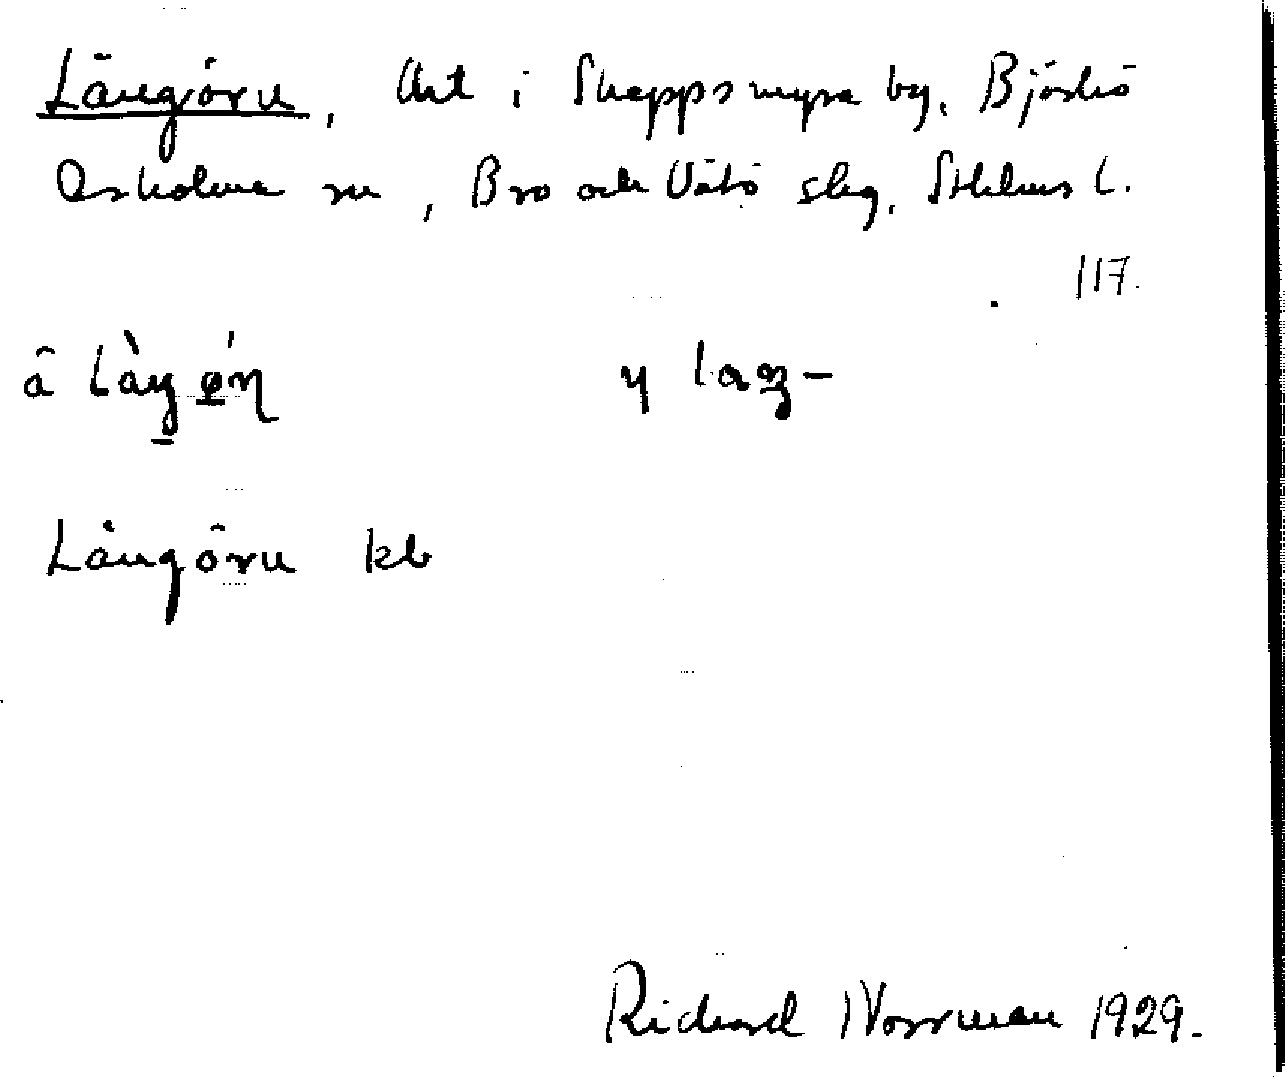 Långörn, Art i Skeppsmyra by, Björkö
Arholma sn, Bro och Vätö skg. Sthlms l.
117.
å làŋ ǿɳ y laŋ-
Långörn kb
Richard Norrman 1929.